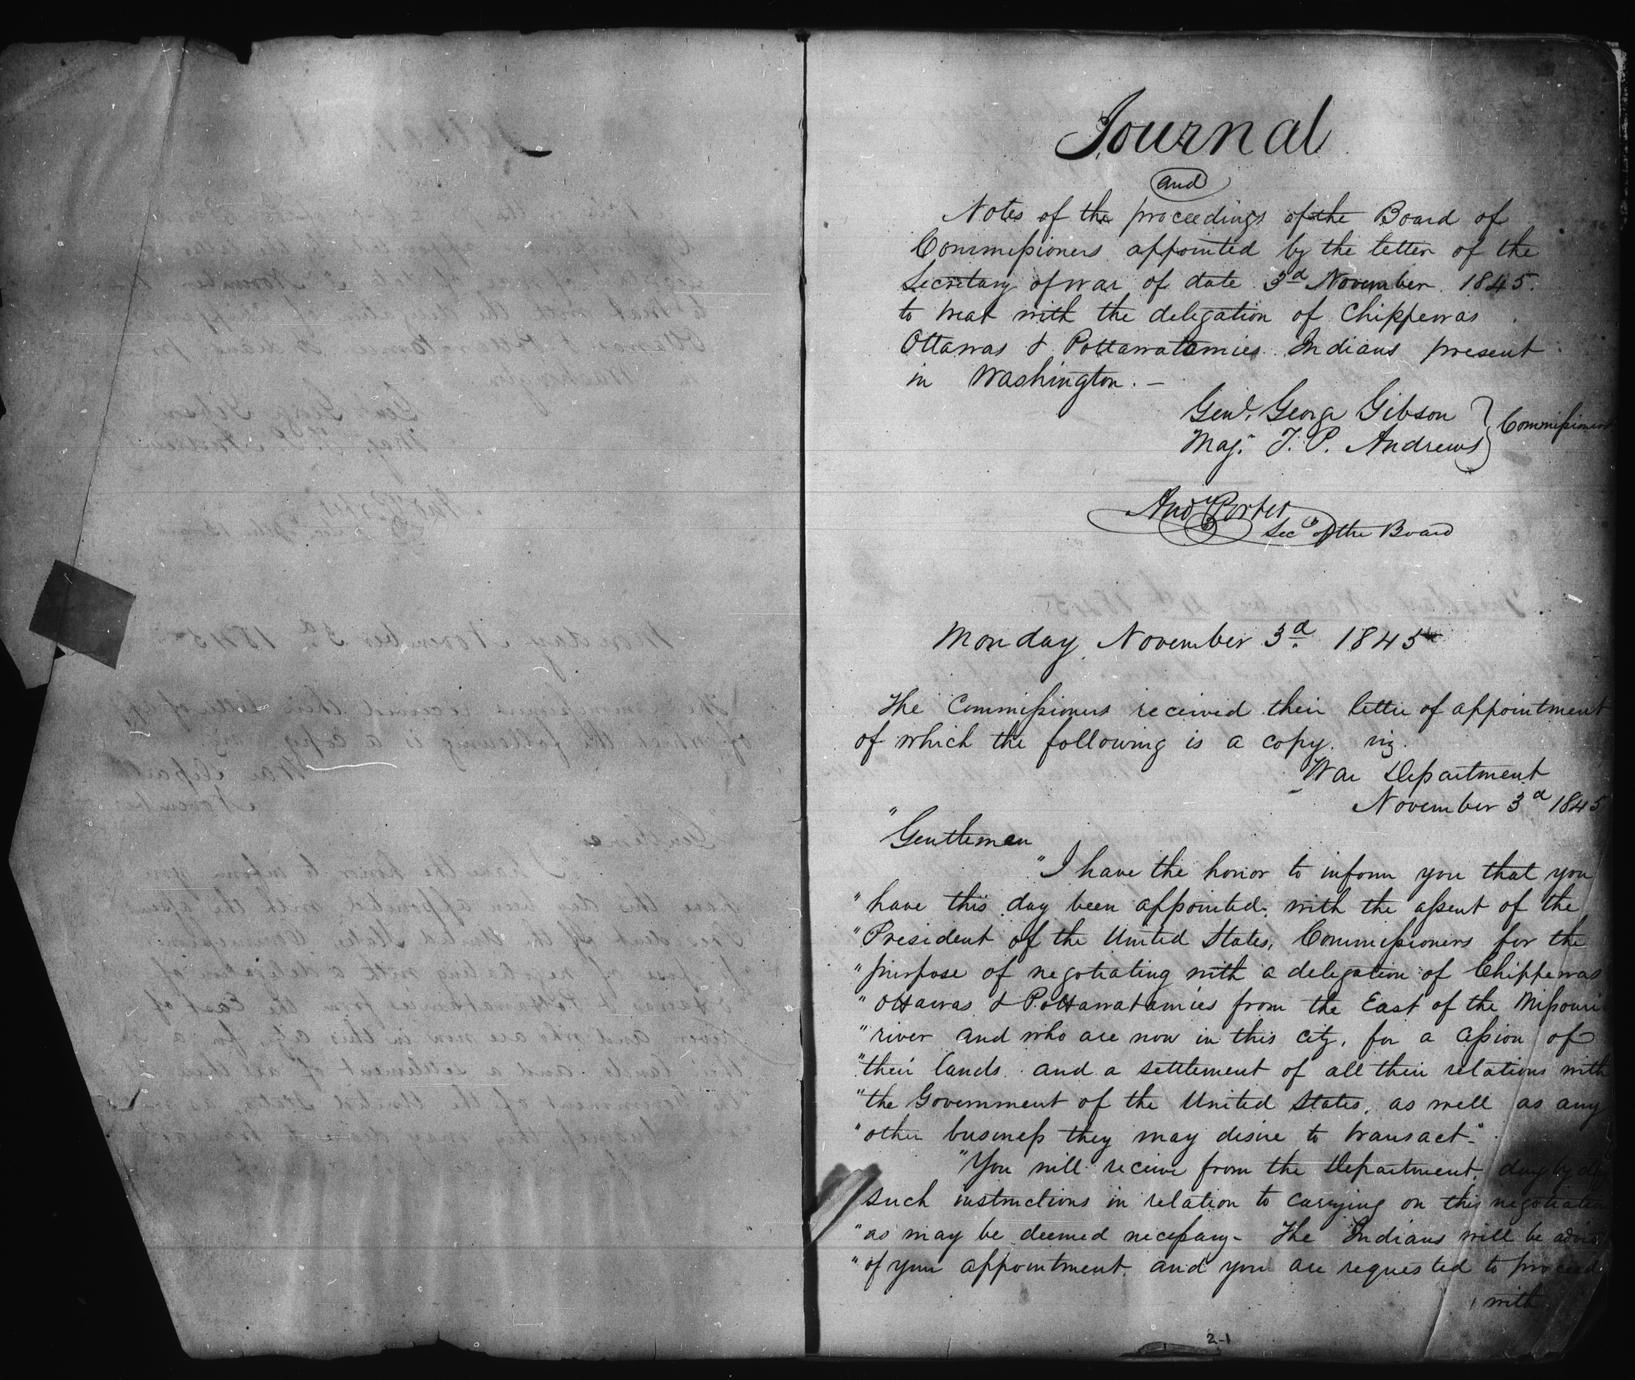 Journal
and
Notes of the proceedings of the Board of
Commissioners appointed by the letter of the
Secretary of war of date 3d November 1845.
to treat with the delegation of Chippewas
Ottawas & Pottawatamies Indians present
in Washington. —
Genl. George Gibson
Maj. T. P. Andrews
Commissioners
And Porter
Secy of the Board
Monday November 3d 1845
The Commissioners received their letter of appointment
of which the following is a copy. viz.
War Department
November 3d 1845
"Gentlemen
"I have the honor to inform you that you
"have this day been appointed, with the assent of the
"President of the United States, Commissioners for the
"purpose of negotiating with a delegation of Chippewas
"Ottawas & Pottawatamies from the East of the Missouri
"river and who are now in this city, for a cession of
"their lands and a settlement of all their relations with
"the Government of the United States, as well as any
"other business they may desire to transact."
"You will receive from the Department, day by day
such instructions in relation to carrying on this negotiation
"as may be deemed necessary - The Indians will be advised
"of your appointment, and you are requested to proceed
with
2-1